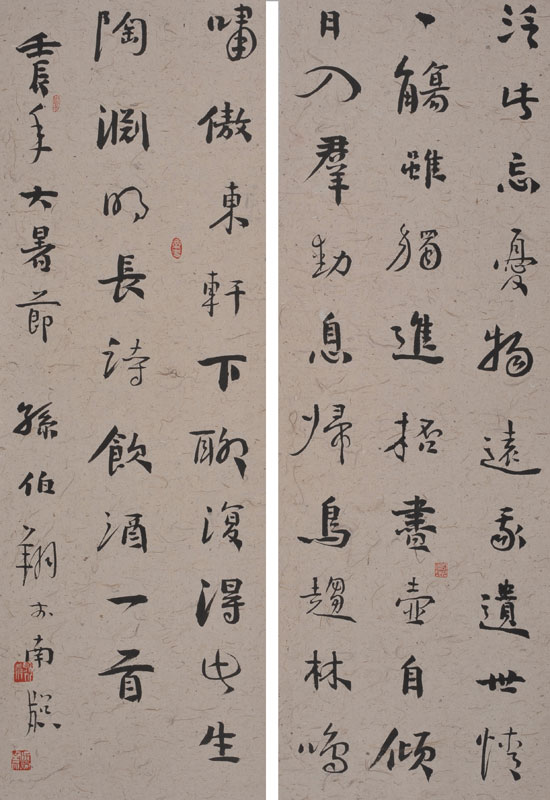 泛此忘憂物遠我遺世情
一觴雖獨進桮盡壺自傾
日入羣動息歸鳥趨林鳴
嘯傲東軒下聊復得此生
陶淵明長詩飲酒一首
壬辰年大暑節 孫伯翔於南牕